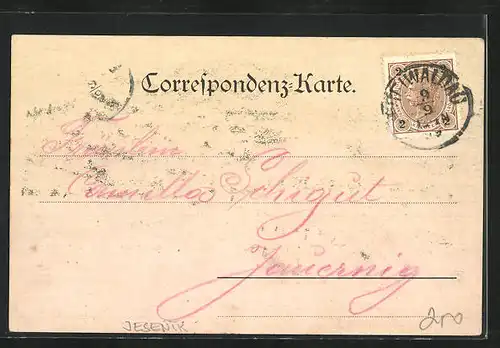 Correspondenz-Karte.
2
FREIWALDAU
9
9
2
99
Fräulein
Camilla Schigut
Jauernig
JESENIK
200